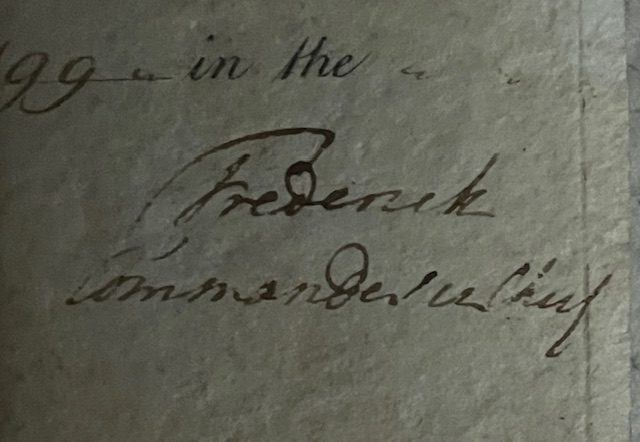 99 in the
Frederick
Commander in Chief